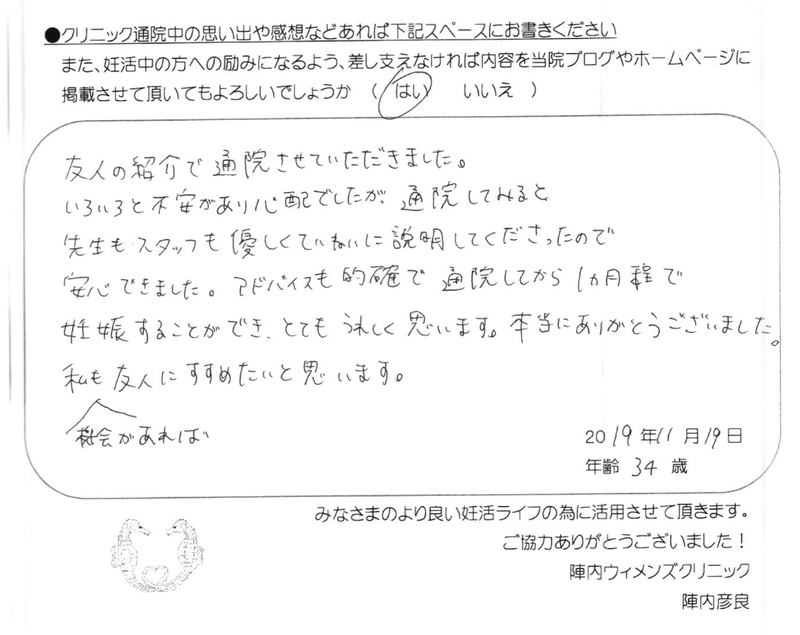 ●クリニック通院中の思い出や感想などあれば下記スペースにお書きください
また、妊活中の方への励みになるよう、差し支えなければ内容を当院ブログやホームページに
掲載させて頂いてもよろしいでしょうか ( はい いいえ )
友人の紹介で通院させていただきました。
いろいろと不安があり心配でしたが、通院してみると
先生も、スタッフも優しくていねいに説明してくださったので
安心できました。アドバイスも的確で通院してから1ヵ月程で
妊娠することができ、とてもうれしく思います。本当にありがとうございました。
私も友人にすすめたいと思います。
機会があれば
2019年11月19日
年齢 34 歳
みなさまのより良い妊活ライフの為に活用させて頂きます。
ご協力ありがとうございました！
陣内ウィメンズクリニック
陣内彦良